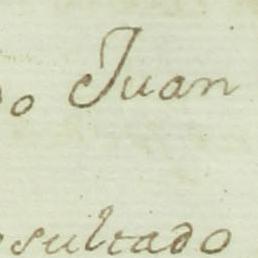 Juan
esultado